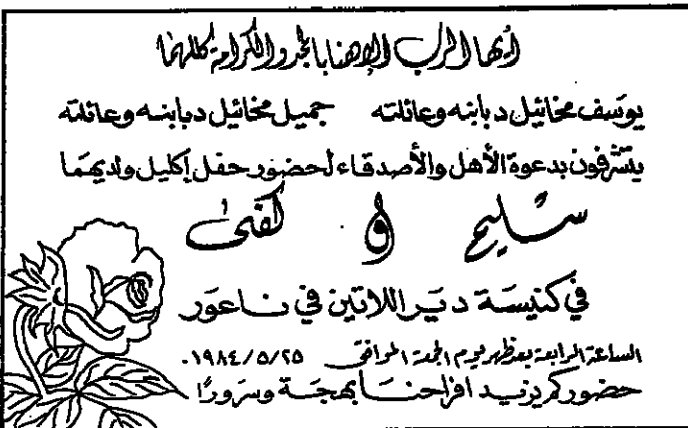 أيها الرب إلاهنا بالمجد والكرامة كللهما
يوسف مخائيل دبابنه وعائلته جميل مخائيل دبابنه وعائلته
يتشرفون بدعوة الأهل والأصدقاء لحضور حفل إكليل ولديهما
سليح و كفى
في كنيسة دير اللاتين في ناعور
الساعة الرابعة بعد ظهر يوم الجمعة الموافق ١٩٨٤/٥/٢٥.
حضوركم يزيد افراحنا بهجة وسرورًا